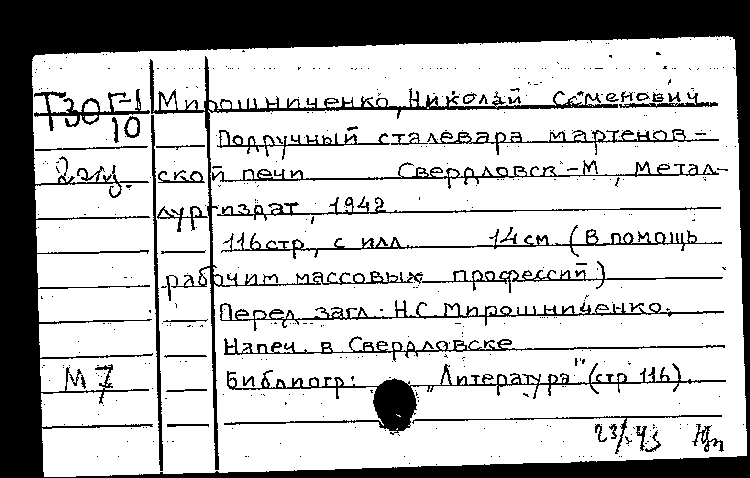 Т30 Г-1 Мирошниченко, Николай Семенович
10
Подручный сталевара мартенов-
2 экз. ской печи Свердловск-М, Метал-
лургиздат, 1942
116стр, с илл 14см (В помощь
рабочим массовых профессий)
Перед загл: Н.С. Мирошниченко.
Напеч. в Свердловске
М7 Библиогр: "Литература" (стр 116).